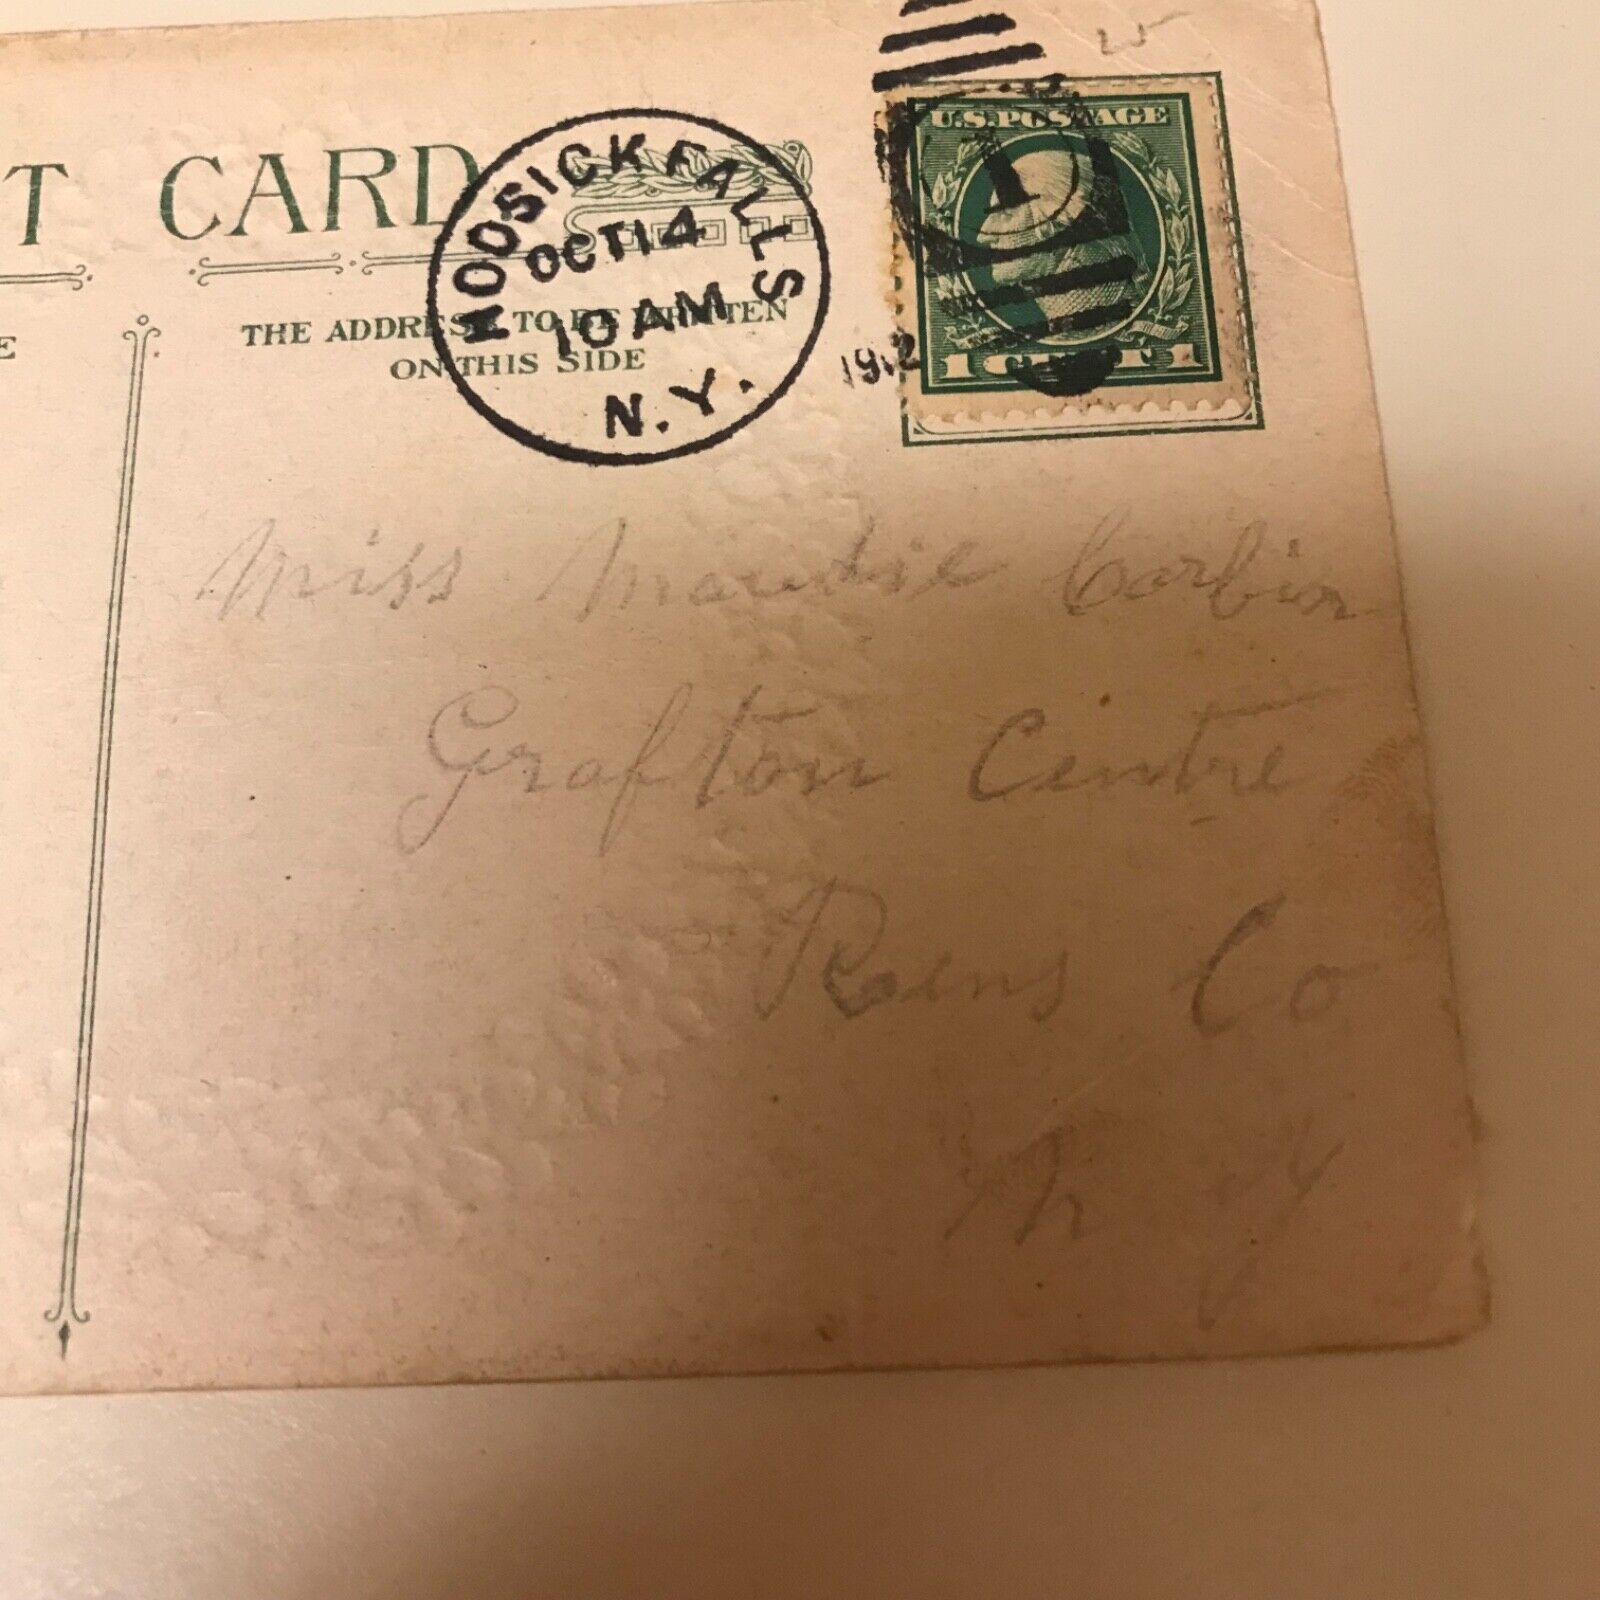 25
U.S. POSTAGE
1
1 CENT 1
T CARD
HOOSICK FALLS
OCT 14
10 AM
1912
N.Y.
E
THE ADDRESS TO BE WRITTEN
ON THIS SIDE
Miss Maudie Corbin
Grafton Centre
Rens Co
N Y